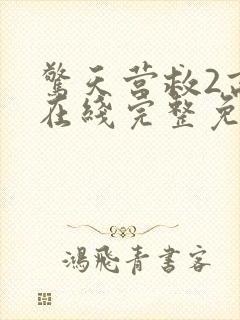 驚天营救2
在綫完整免
鴻飛青書客